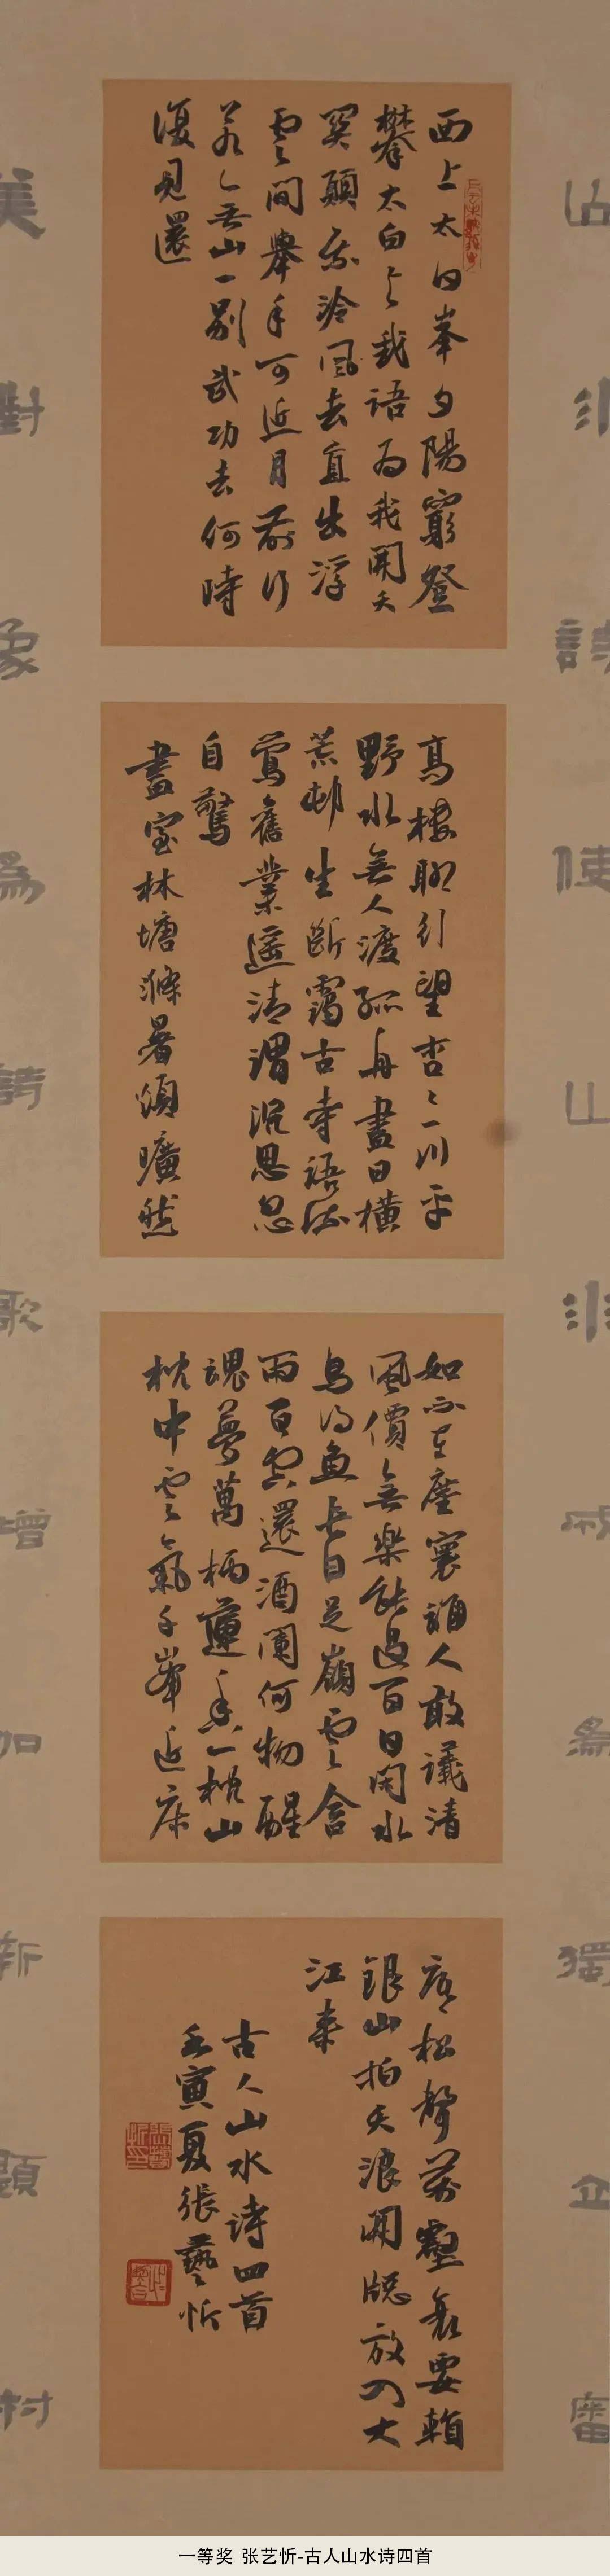 山水詩使山水為獨立審
美對象為詩歌增加新題材
西上太白峯夕陽窮登
攀太白与我語为我開天
關願乘泠風去直出浮
雲間舉手可近月前行
若無山一別武功去何時
復見還
高樓聊引望杳〻一川平
野水無人渡孤舟盡日橫
荒邨生斷靄古寺語流
鶯舊業遥清渭沉思忽
自驚
盡室林塘滌暑煩曠然
如不在塵寰誰人敢議清
風價無樂能過百日閑水
鳥得魚長自足嶺雲含
雨只空還酒闌何物醒
魂夢萬柄蓮香一枕山
枕中雲氣千峯近床
底松聲萬壑哀要
銀山拍天浪開窓放入大
江来
古人山水诗四首
壬寅夏張藝忻
一等奖 张艺忻-古人山水诗四首